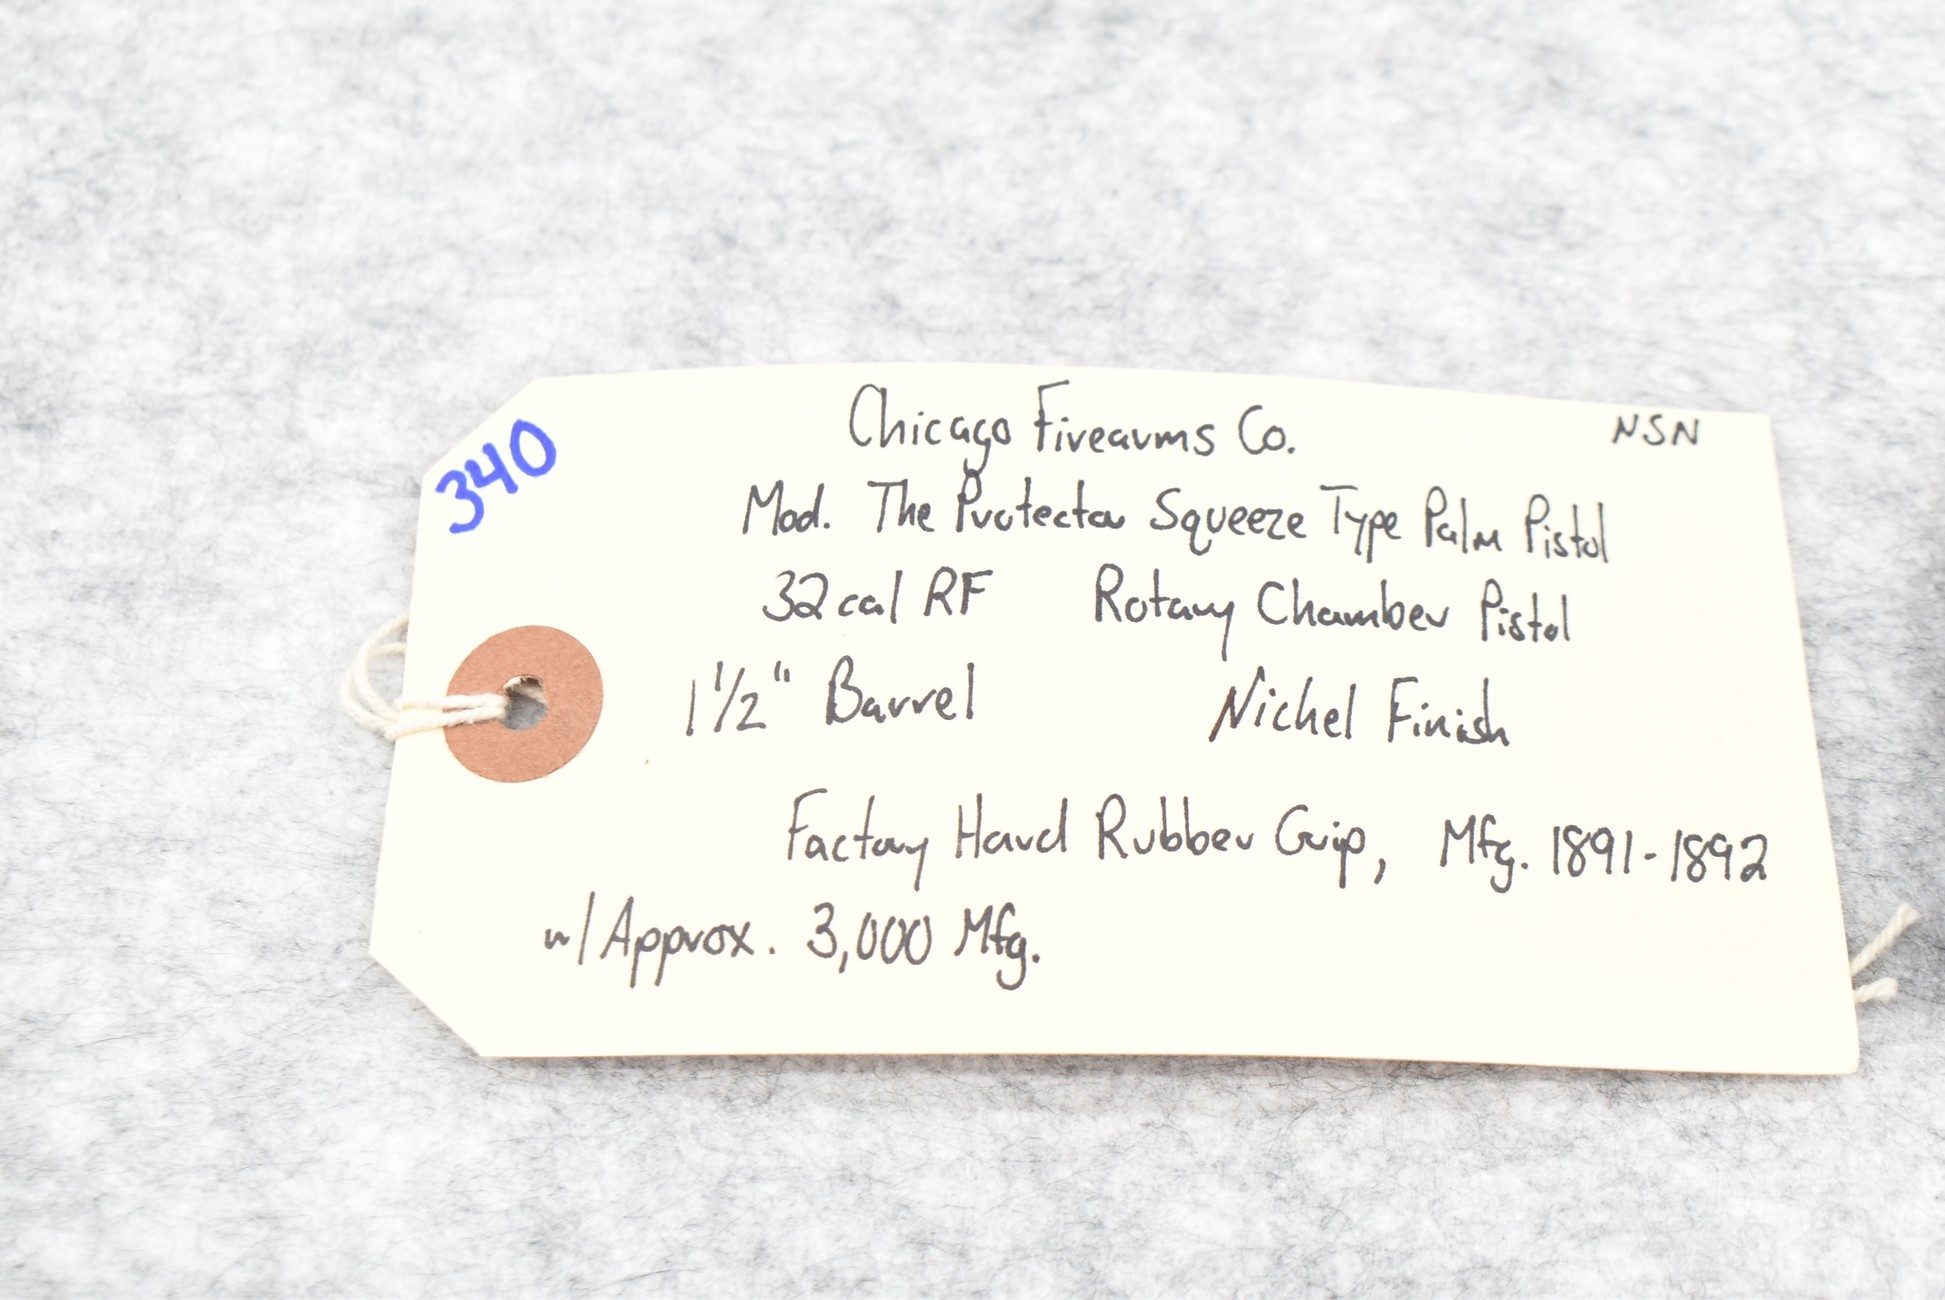 340
Chicago Firearms Co. NSN
Mod. The Protector Squeeze Type Palm Pistol
32 cal RF Rotary Chamber Pistol
1 1/2" Barrel Nickel Finish
Factory Hard Rubber Grip, Mfg. 1891-1892
w/ Approx. 3,000 Mfg.